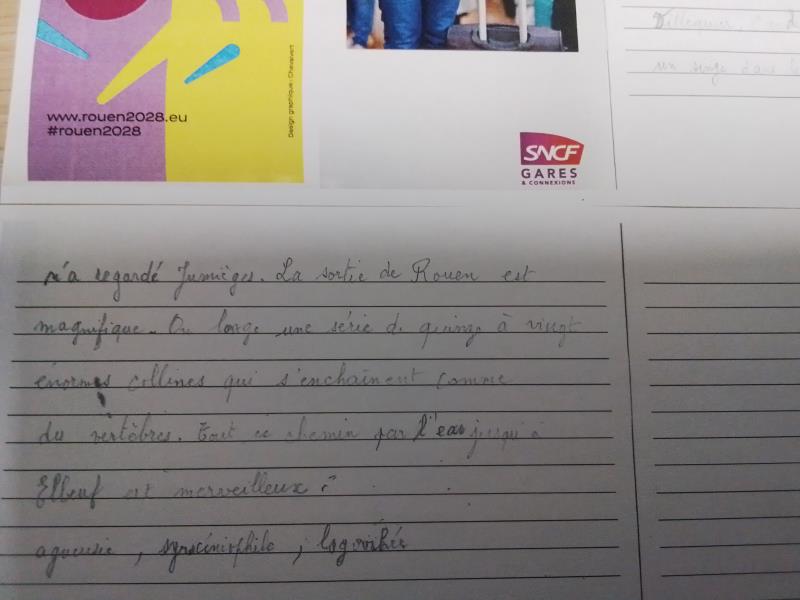 www.rouen2028.eu
#rouen2028
Design graphique : Chevalvert
SNCF
GARES
& CONNEXIONS
Villequier,
un singe dans
n'a regardé Jumièges. La sortie de Rouen est
magnifique. On longe une série de quinze à vingt
énormes collines qui s'enchaînent comme
des vertèbres. Tout ce chemin par l'eau jusqu'à
Elbeuf est merveilleux.
agueusie,